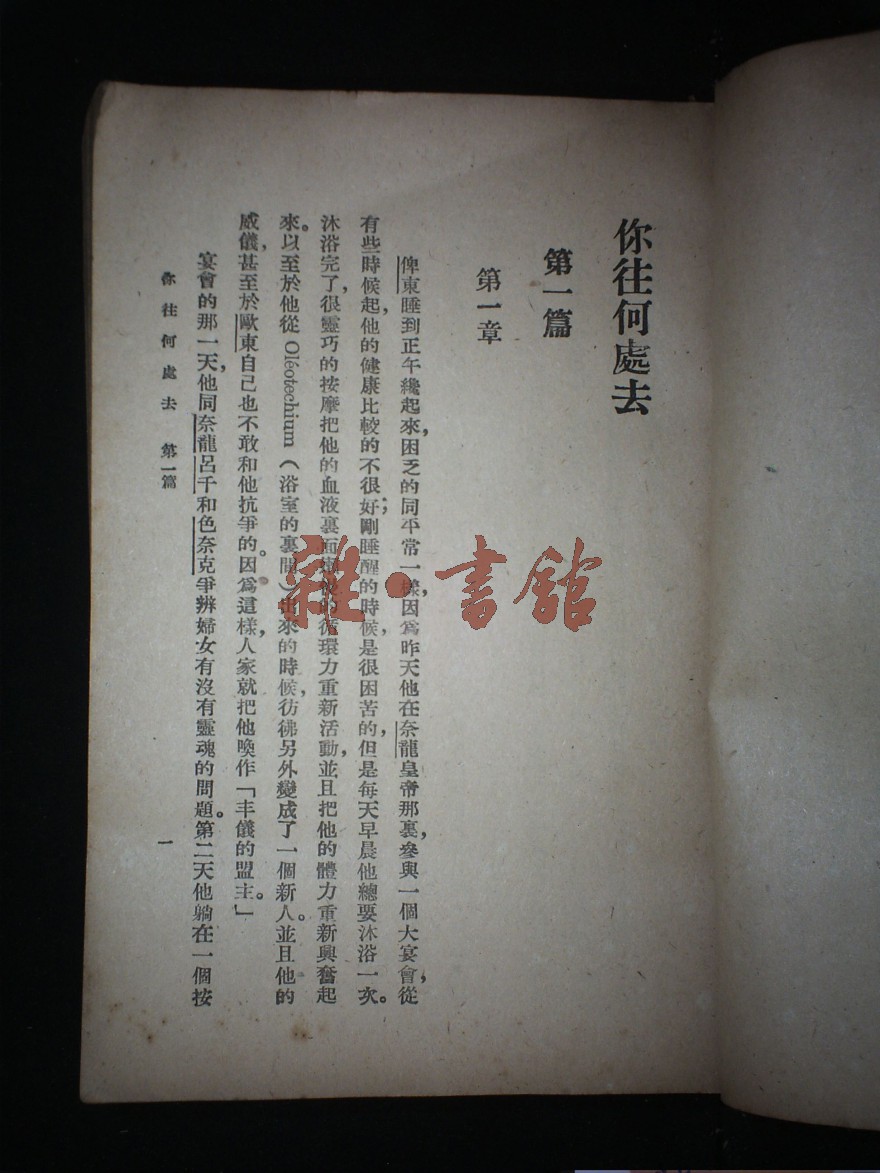 你往何處去
第一篇
第一章
俾東睡到正午纔起來,困乏的同平常一樣,因爲昨天他在奈龍皇帝那裏,參與一個大宴會,從
有些時候起,他的健康比較的不很好;剛睡醒的時候是很困苦的,但是每天早晨他總要沐浴一次。
沐浴完了,很靈巧的按摩把他的血液裏面的循環力重新活動,並且把他的體力重新興奮起
來。以至於他從 Oléotechium(浴室的裏間)出來的時候,彷彿另外變成了一個新人。並且他的
威儀,甚至於歐東自己也不敢和他抗爭的。因爲這樣,人家就把他喚作「丰儀的盟主。」
宴會的那一天,他同奈龍呂千和色奈克爭辨婦女有沒有靈魂的問題。第二天他躺在一個按
你往何處去 第一篇
一
雜·書館